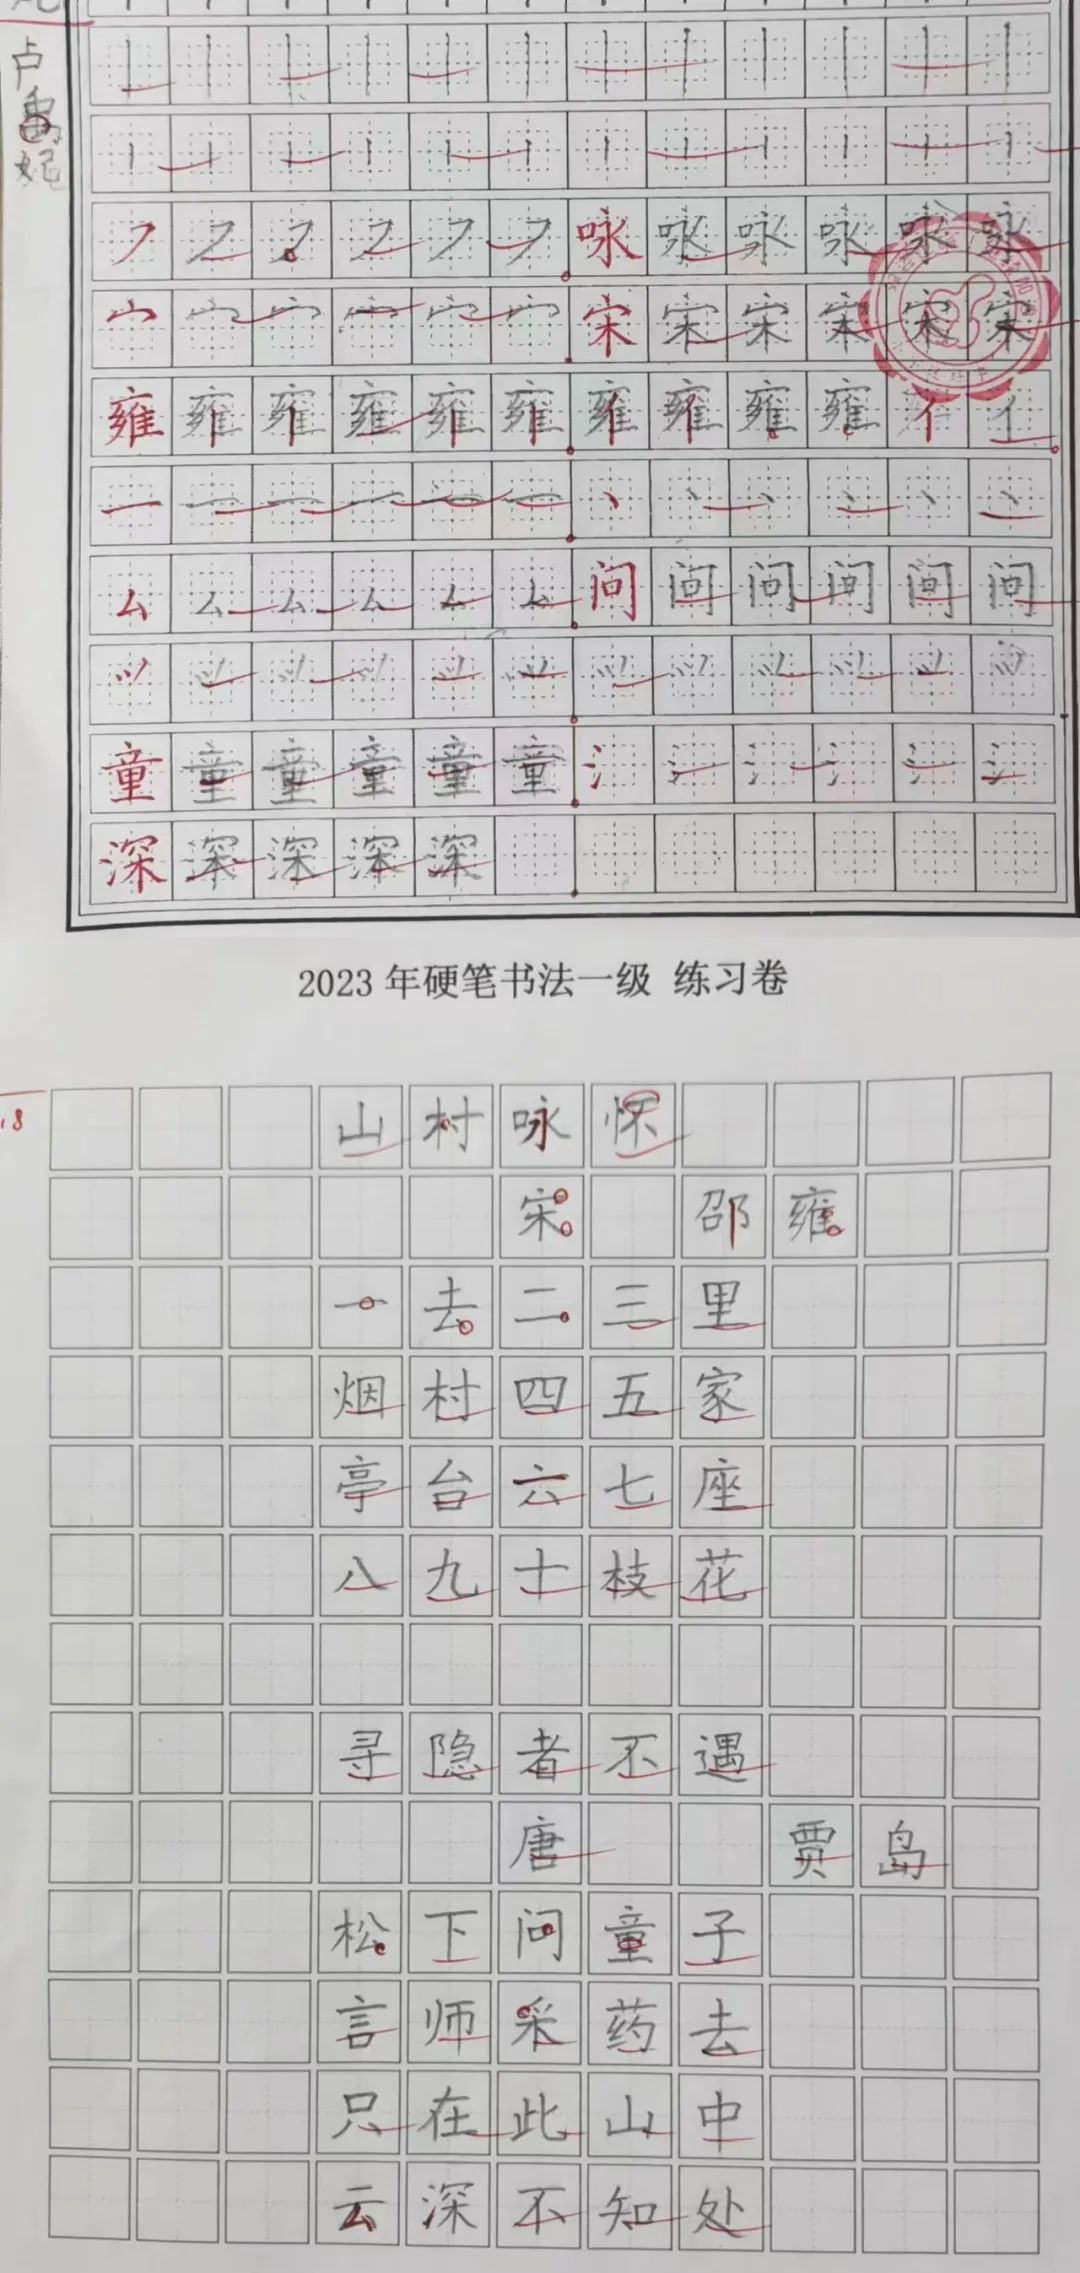 卢禹妃
丨丨丨丨丨丨丨丨丨丨丨丨
丨丨丨丨丨丨丨丨丨丨丨丨
㇇㇇㇇㇇㇇㇇咏咏咏咏咏咏
宀宀宀宀宀宀宋宋宋宋宋宋
雍雍雍雍雍雍雍雍雍雍亻亻
一一一一一一丶丶丶丶丶丶
厶厶厶厶厶厶问问问问问问
童童童童童童氵氵氵氵氵氵
深深深深深
2023年硬笔书法一级 练习卷
山村咏怀
宋 邵雍
一去二三里
烟村四五家
亭台六七座
八九十枝花
寻隐者不遇
唐 贾岛
松下问童子
言师采药去
只在此山中
云深不知处